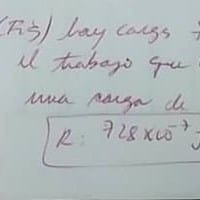 hay carga
el trabajo que
una carga de
R: 728x10⁻⁷ J